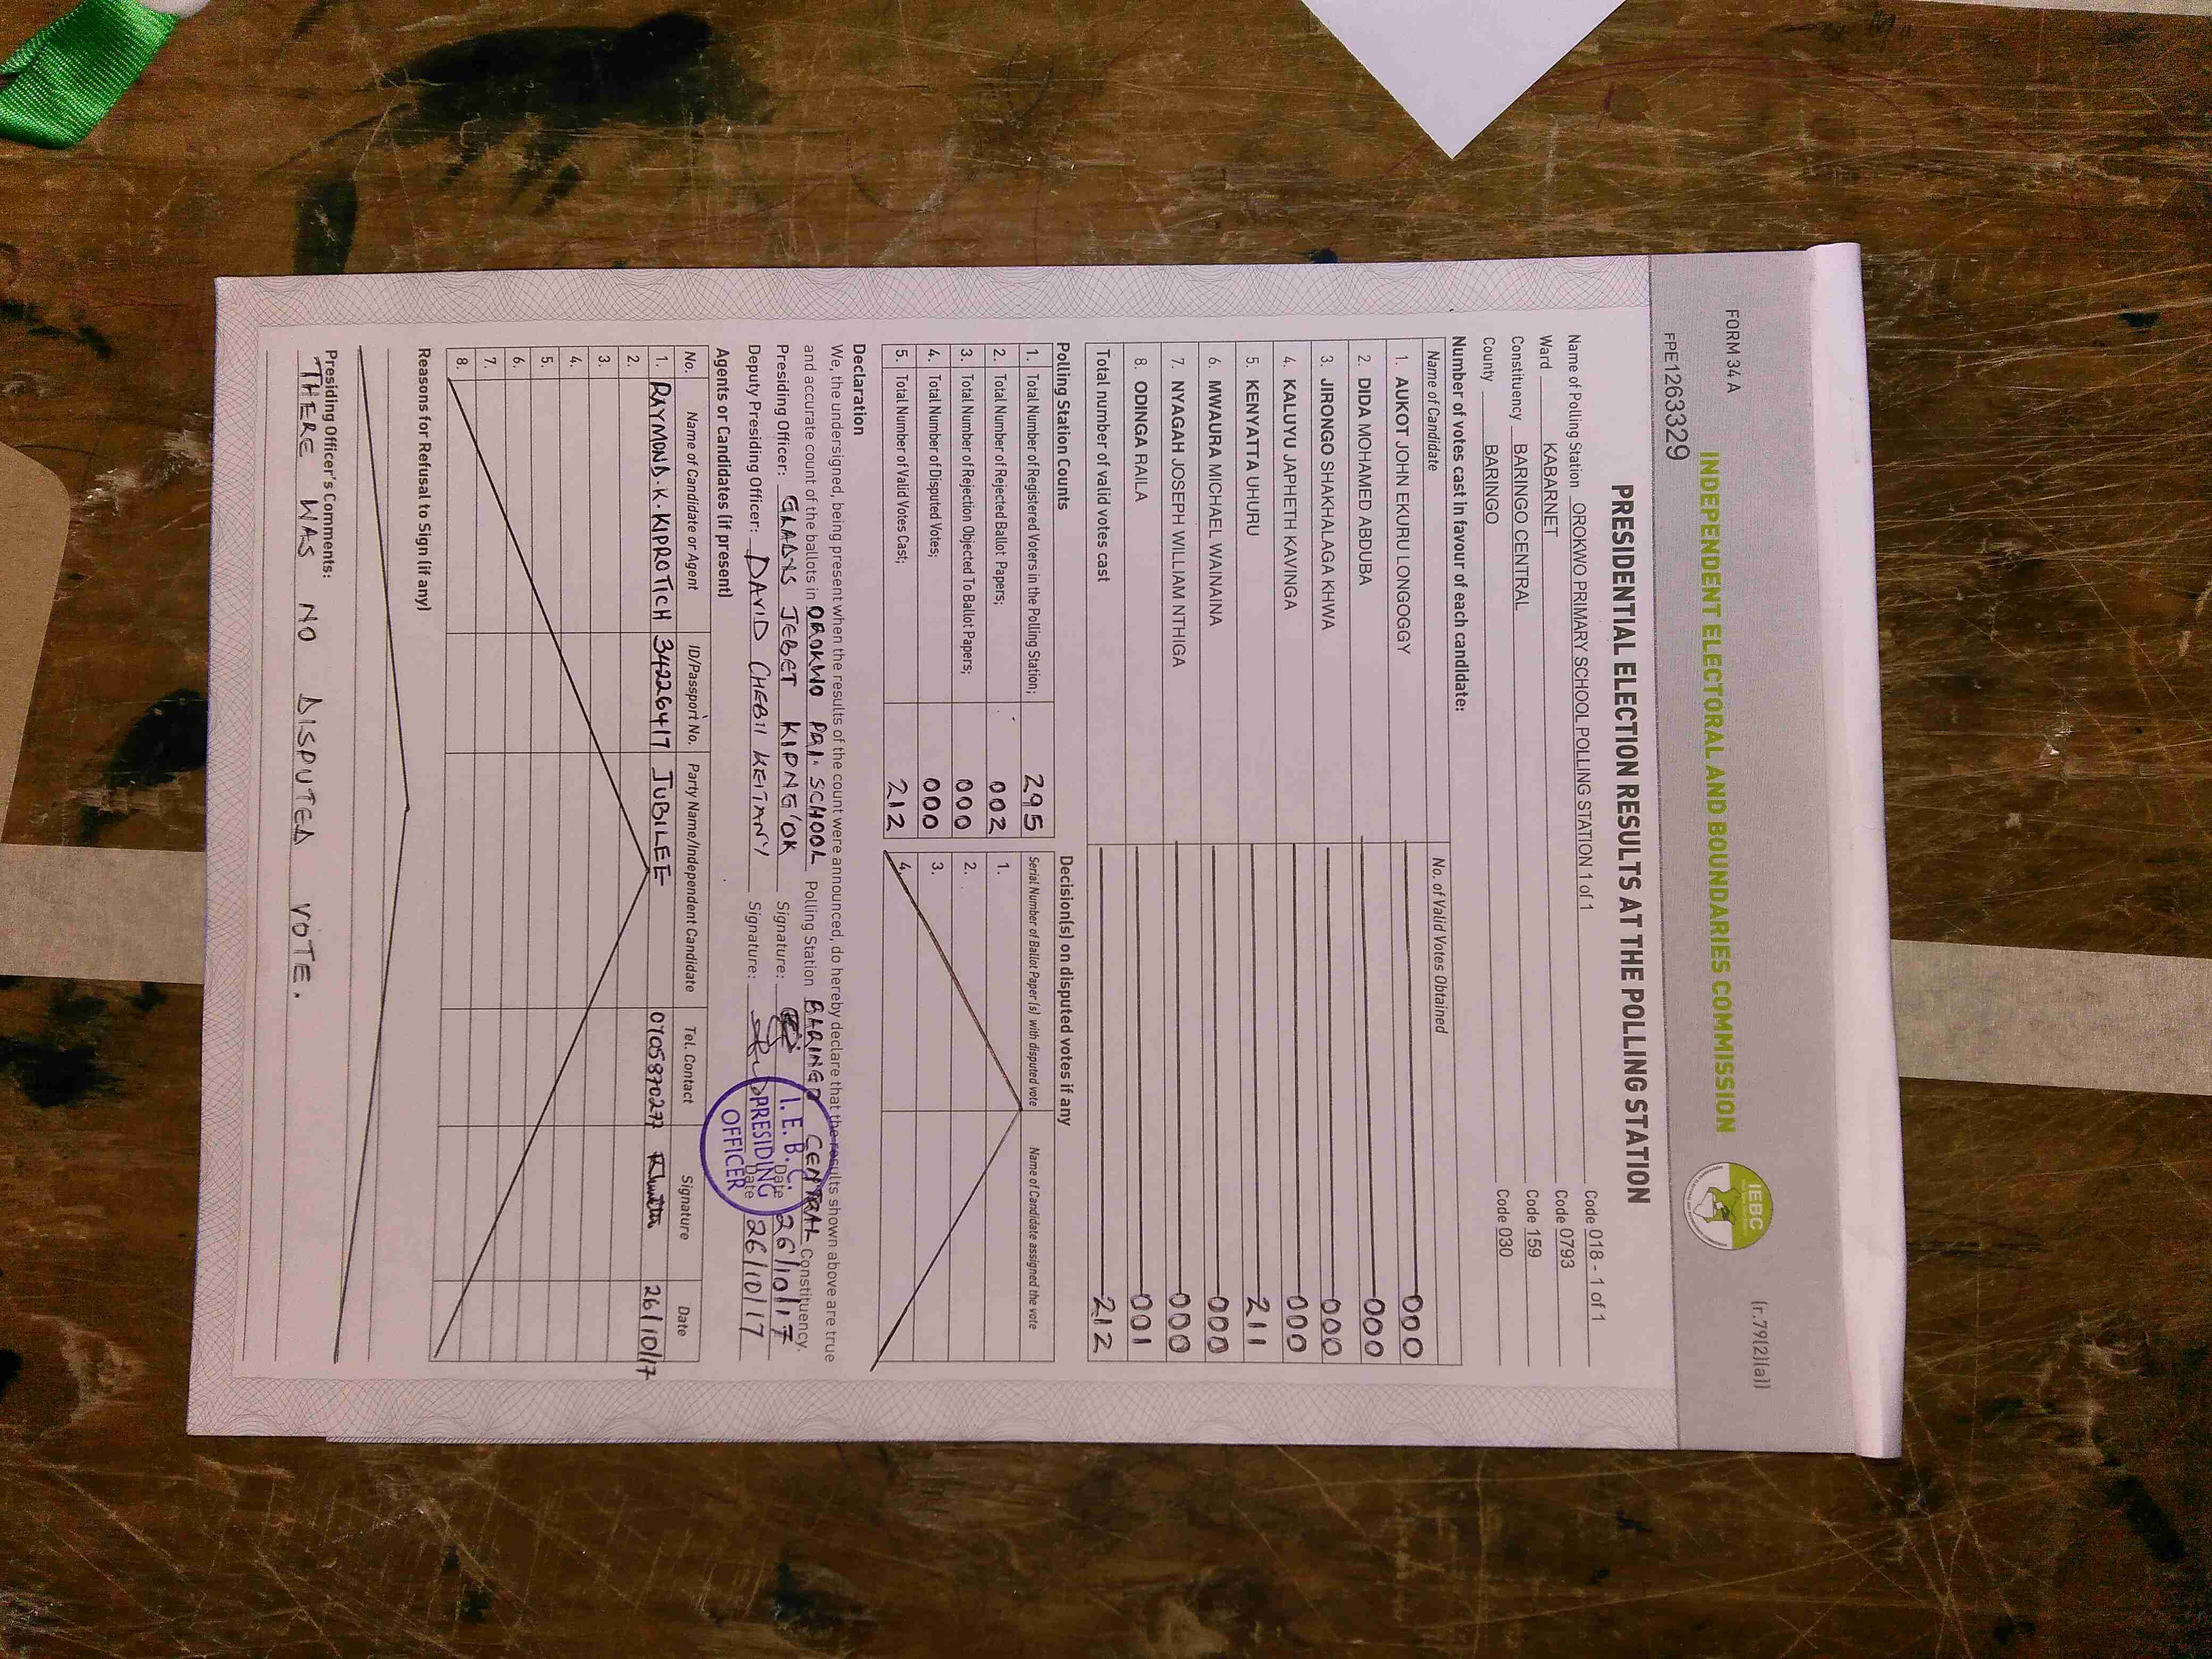 FORM 34 A
(r.79(2)(a))
INDEPENDENT ELECTORAL AND BOUNDARIES COMMISSION
IEBC
FPE1263329
PRESIDENTIAL ELECTION RESULTS AT THE POLLING STATION
Name of Polling Station OROKWO PRIMARY SCHOOL POLLING STATION 1 of 1 Code 018 - 1 of 1
Ward KABARNET Code 0793
Constituency BARINGO CENTRAL Code 159
County BARINGO Code 030
Number of votes cast in favour of each candidate:
Name of Candidate No. of Valid Votes Obtained
1. AUKOT JOHN EKURU LONGOGGY 000
2. DIDA MOHAMED ABDUBA 000
3. JIRONGO SHAKHALAGA KHWA 000
4. KALUYU JAPHETH KAVINGA 000
5. KENYATTA UHURU 211
6. MWAURA MICHAEL WAINAINA 000
7. NYAGAH JOSEPH WILLIAM NTHIGA 000
8. ODINGA RAILA 001
Total number of valid votes cast 212
Polling Station Counts Decision(s) on disputed votes if any
1. Total Number of Registered Voters in the Polling Station; 295 Serial Number of Ballot Paper(s) with disputed vote Name of Candidate assigned the vote
2. Total Number of Rejected Ballot Papers; 002 1.
3. Total Number of Rejection Objected To Ballot Papers; 000 2.
4. Total Number of Disputed Votes; 000 3.
5. Total Number of Valid Votes Cast; 212 4.
Declaration
We, the undersigned, being present when the results of the count were announced, do hereby declare that the results shown above are true
and accurate count of the ballots in OROKWO PRI. SCHOOL Polling Station BARINGO CENTRAL Constituency.
Presiding Officer: GLADYS JEBET KIPNG'OK Signature: Date 26/10/17
Deputy Presiding Officer: DAVID CHEBII KEITANY Signature: Date 26/10/17
I.E.B.C.
PRESIDING
OFFICER
Agents or Candidates (if present)
No. Name of Candidate or Agent ID/Passport No. Party Name/Independent Candidate Tel. Contact Signature Date
1. RAYMOND.K.KIPROTICH 34226417 JUBILEE 0705870277 26/10/17
2.
3.
4.
5.
6.
7.
8.
Reasons for Refusal to Sign (if any)
Presiding Officer's Comments:
THERE WAS NO DISPUTED VOTE.